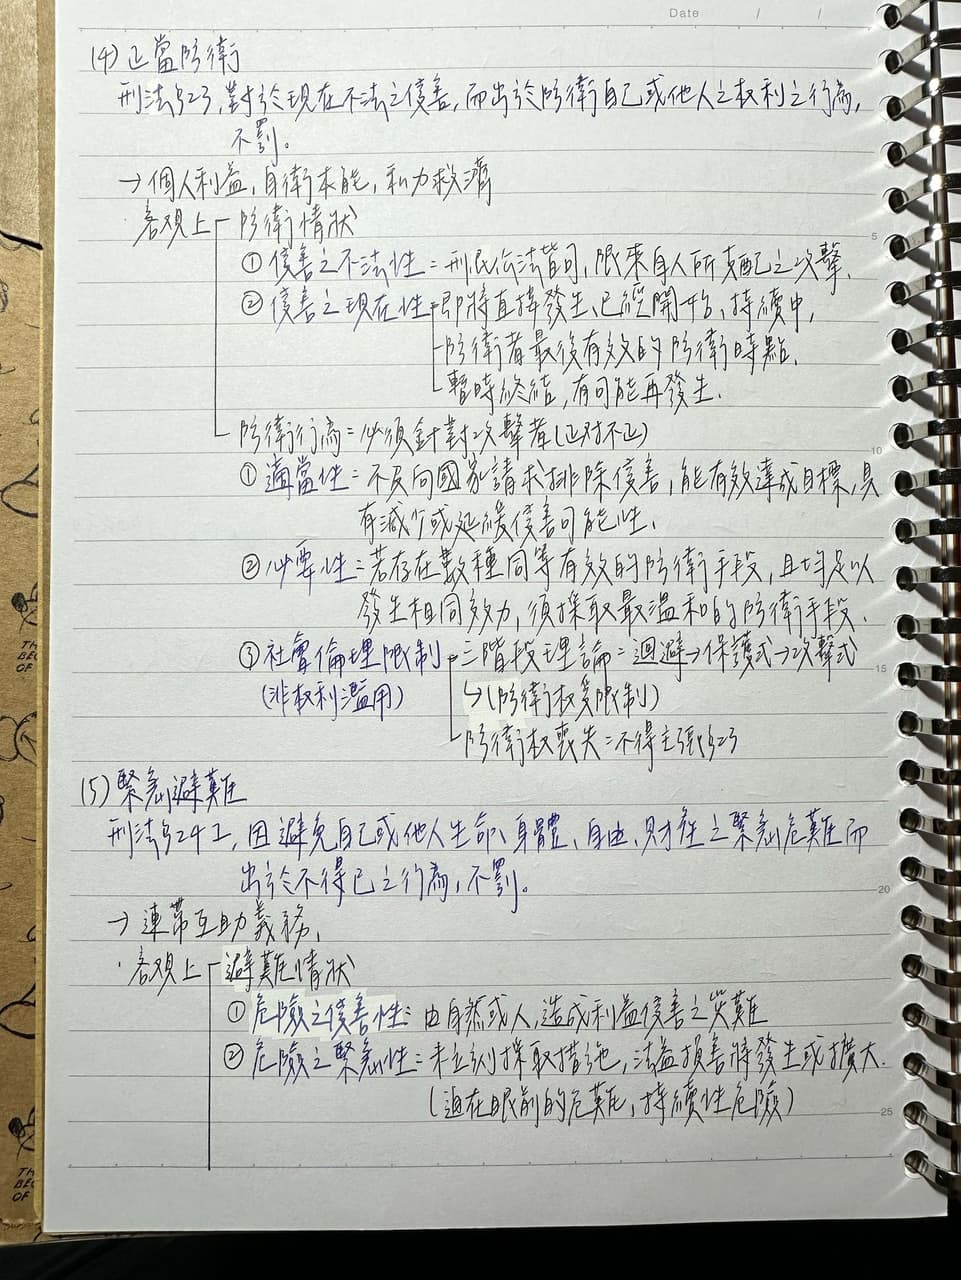 Date / /
(4) 正當防衛
刑法§23,對於現在不法之侵害,而出於防衛自己或他人之权利之行為,
不罰。
→個人利益,自衛本能,私力救濟
·客观上 防衛情狀
①侵害之不法性=刑民公法皆可,限來自人所支配之攻擊.
②侵害之現在性 即將直接發生、已經開始、持續中,
防衛者最後有效的防衛時點.
暫時終結,有可能再發生.
5
防衛行為=必須針對攻擊者(正对不正)
10
①適當性=不及向國家請求排除侵害,能有效達成目標,具
有減少或延緩侵害可能性.
②必要性=若存在數種同等有效的防衛手段,且均足以
發生相同效力,須採取最溫和的防衛手段.
③社會倫理限制 三階段理論=迴避→保護式→攻擊式
15
(非权利濫用) ↳(防衛权受限制)
防衛权喪失=不得主張§23
(5) 緊急避難
刑法§24I,因避免自己或他人生命、身體、自由、財產之緊急危難而
出於不得已之行為,不罰。
20
→連帶互助義務.
·客观上 避難情狀
①危險之侵害性=由自然或人,造成利益侵害之災難
②危險之緊急性=未立刻採取措施,法益損害將發生或擴大.
(迫在眼前的危難,持續性危險)
25
THE
BEC
OF
TH
BEC
OF